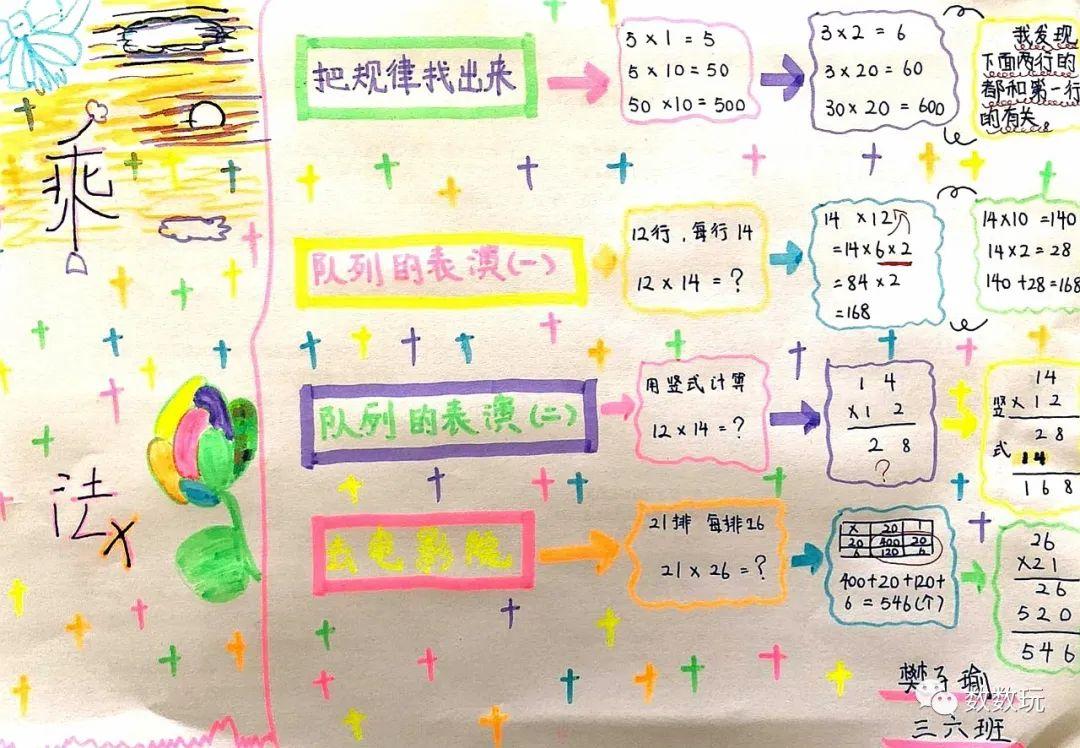 乘
法
×
把规律找出来
5×1=5
5×10=50
50×10=500
3×2=6
3×20=60
30×20=600
我发现
下面两行的
都和第一行
的有关。
队列的表演(一)
12行，每行14
12×14=?
14×12
=14×6×2
=84×2
=168
14×10=140
14×2=28
140+28=168
队列的表演(二)
用竖式计算
12×14=?
1 4
×1 2
2 8
?
竖式
14
×12
28
14
168
去电影院
21排 每排26
21×26=?
× 20 1
20 400 20
6 120 6
400+20+120+
6=546(个)
26
×21
26
520
546
樊子瑜
三六班
数数玩